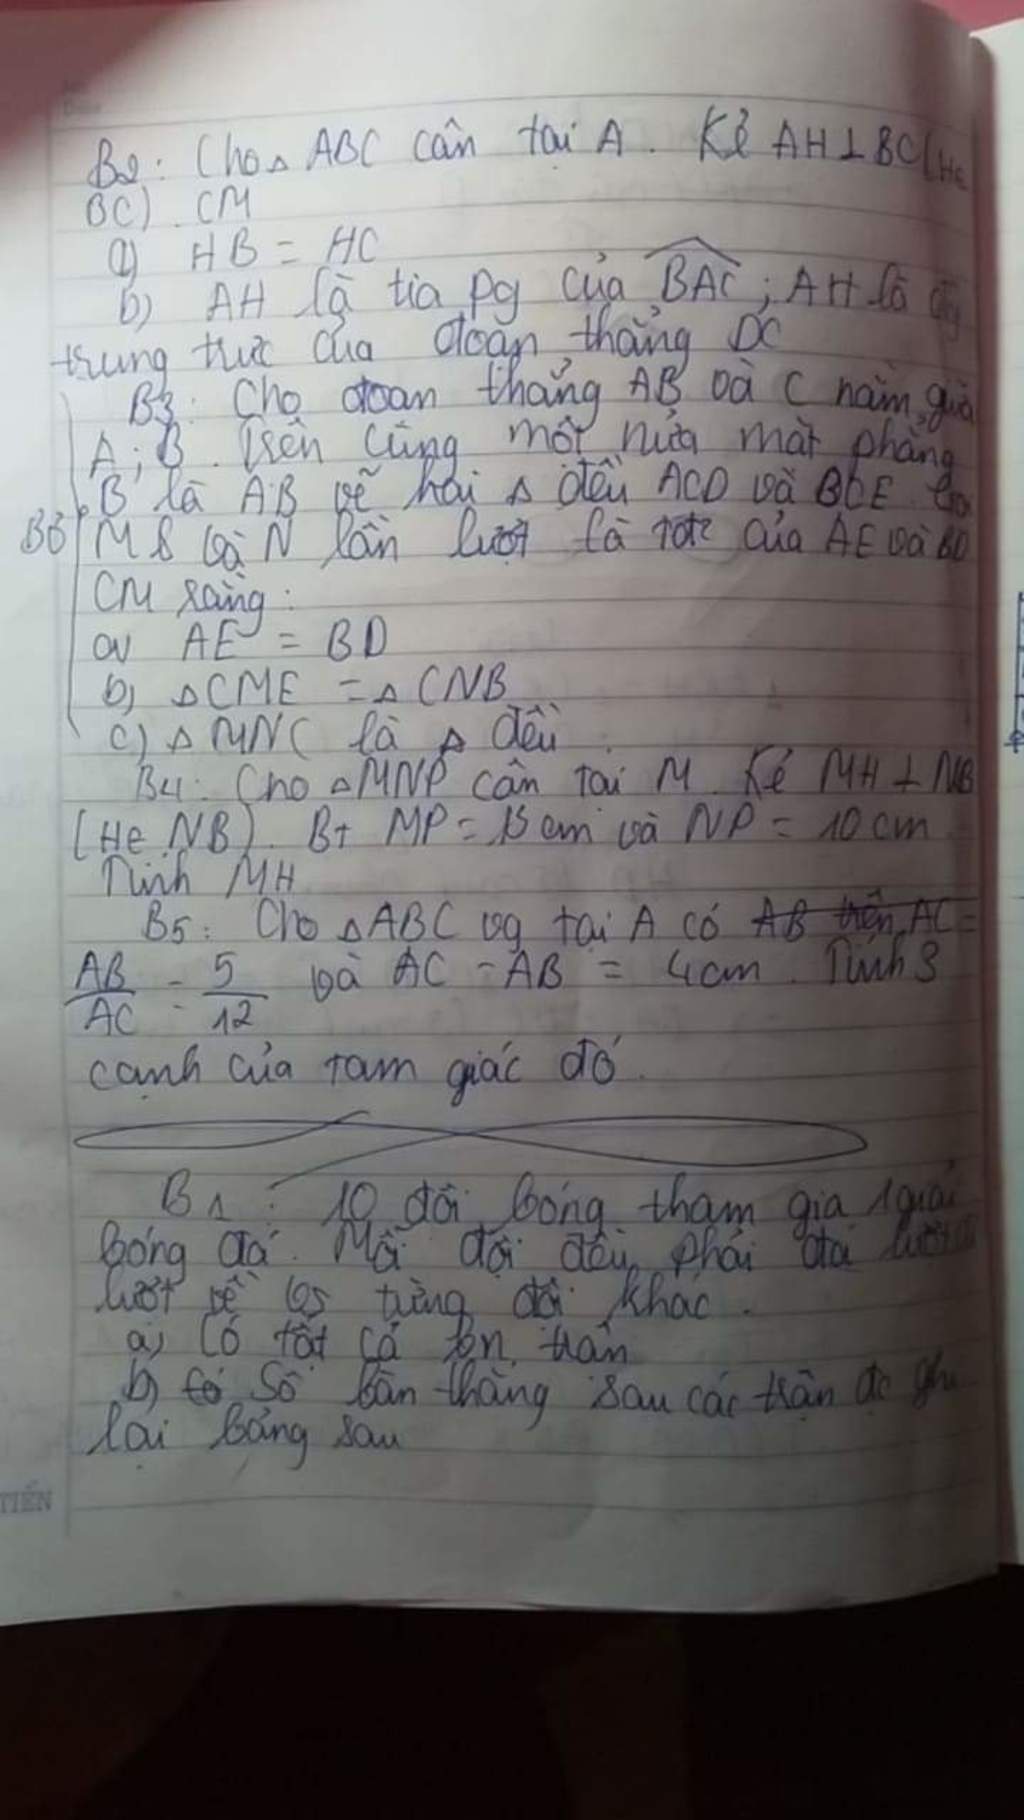 B2: Cho △ ABC cân tại A. Kẻ AH⊥BC (H∈
BC). CM
a) HB = HC
b) AH là tia pg của BAC; AH là đg
trung trực của đoạn thẳng BC
B3: Cho đoạn thẳng AB và C nằm giữa
A; B. Trên cùng một nửa mặt phẳng
B là AB vẽ hai △ đều ACD và BCE.
B3 M và N lần lượt là của AE và BD
CM rằng:
a) AE = BD
b) △CME = △CNB
c) △MNC là △ đều
B4: Cho △MNP cân tại M. Kẻ MH⊥NB
(H∈ NB). Bt MP = 15 cm và NP = 10 cm
Tính MH
B5: Cho △ABC vg tại A có AB trên AC =
AB/AC = 5/12 và AC - AB = 4cm. Tính 3
cạnh của tam giác đó.
B1: 10 đội bóng tham gia 1 giải
bóng đá. Mỗi đội đều phải đá lượt đi
lượt về vs từng đội khác.
a) Có tất cả bn trận
b) Số bàn thắng sau các trận đc ghi
lại bảng sau
TIẾN